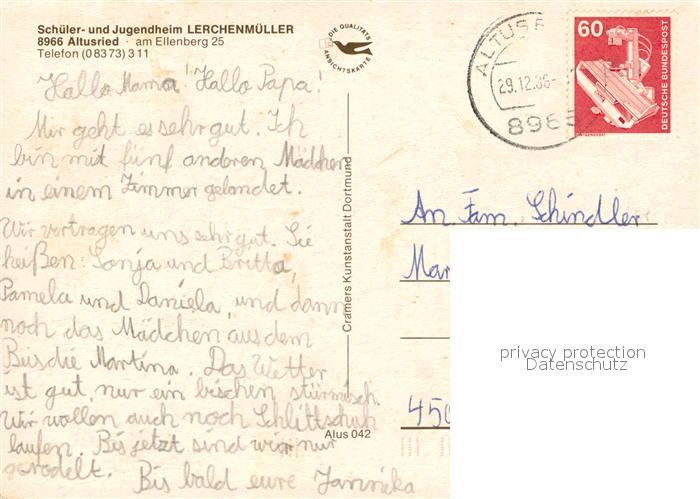 Schüler- und Jugendheim LERCHENMÜLLER
8966 Altusried · am Ellenberg 25
Telefon (0 83 73) 3 11
Hallo Mama! Hallo Papa!
Mir geht es sehr gut. Ich
bin mit fünf anderen Mädchen
in einem Zimmer gelandet.
Wir vertragen uns sehr gut. Sie
heißen: Sonja und Britta,
Pamela und Daniela, und dann
noch das Mädchen aus dem
Bus die Martina. Das Wetter
ist gut, nur ein bischen stürmisch.
Wir wollen auch noch Schlittschuh
laufen. Bis jetzt sind wir nur
gerodelt. Bis bald eure Jannika
Alus 042
Cramers Kunstanstalt Dortmund
DIE QUALITÄTS
ANSICHTSKARTE
ALTUSR
29.12.86
8966
60
DEUTSCHE BUNDESPOST
An Fam. Schindler
Mar
450
privacy protection
Datenschutz